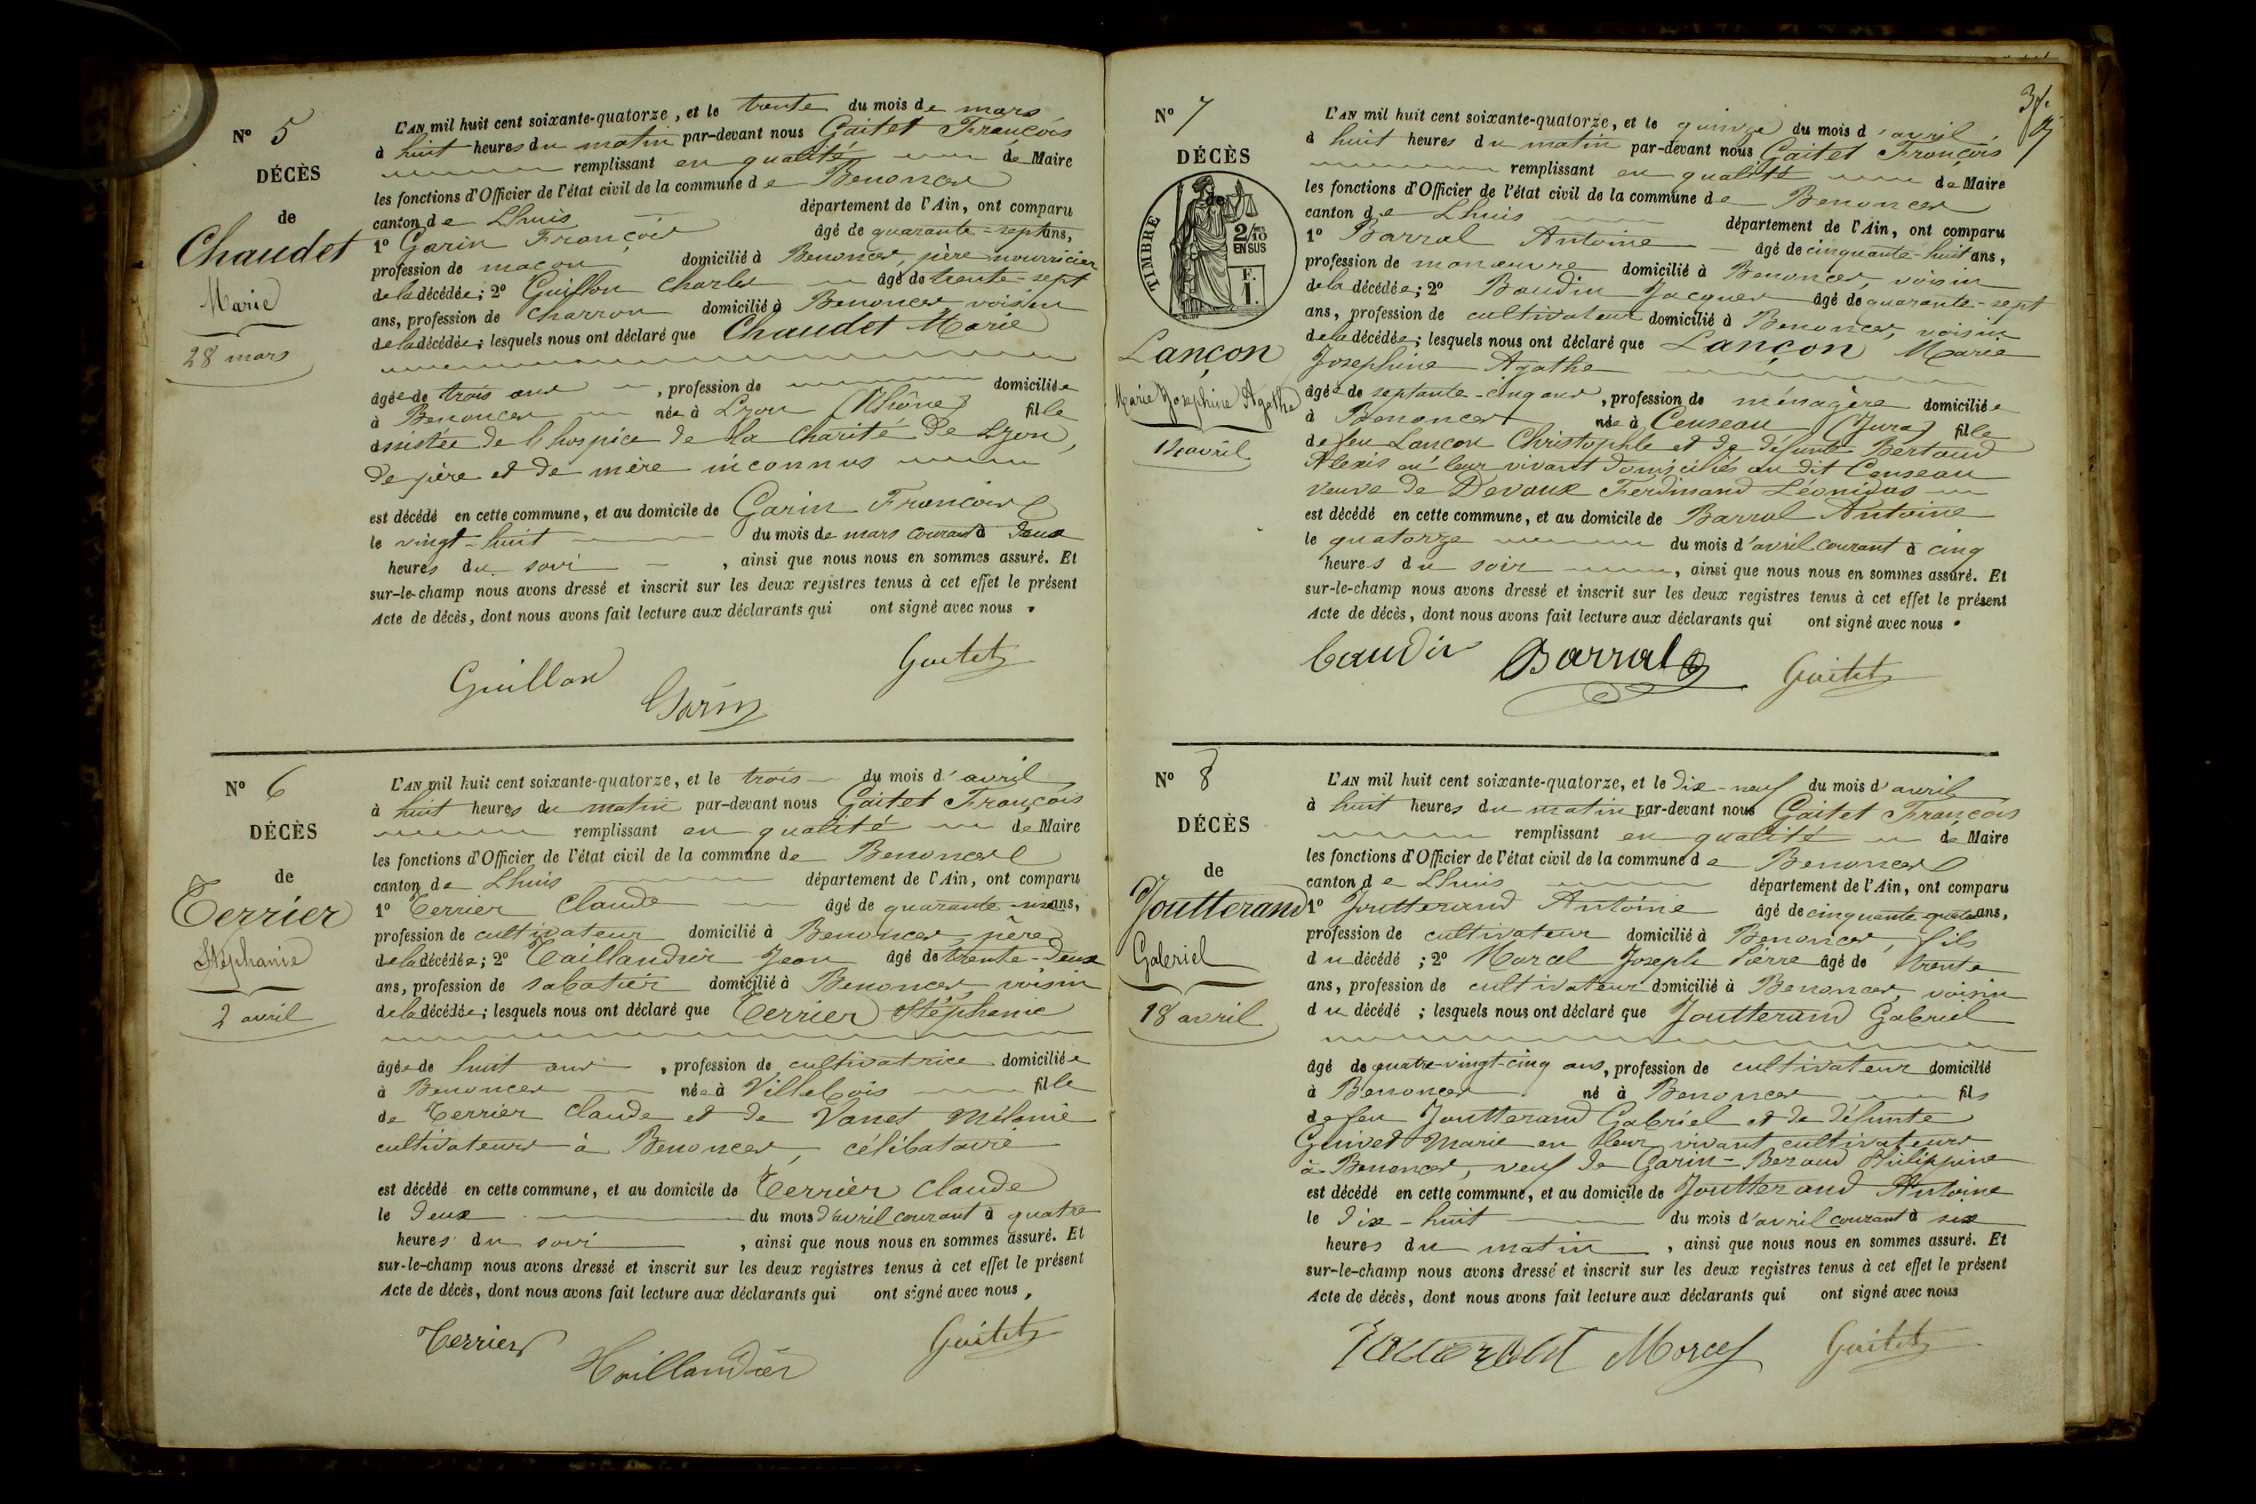 N° 5
DÉCÈS
de
Chaudet
Marie
28 mars
L'AN mil huit cent soixante-quatorze, et le trente du mois de mars
à huit heures du matin par-devant nous Gaitet François
remplissant en qualité de Maire
les fonctions d'Officier de l'état civil de la commune de Benonces
canton de Lhuis département de l'Ain, ont comparu
1° Garin François âgé de quarante-sept ans,
profession de maçon domicilié à Benonces, père nourricier
de la décédée; 2° Guillon Charles âgé de trente-sept
ans, profession de charron domicilié à Benonces voisin
de la décédée; lesquels nous ont déclaré que Chaudet Marie
âgée de trois ans, profession de domiciliée
à Benonces née à Lyon (Rhône) fille
assistée de l'hospice de la Charité de Lyon,
de père et de mère inconnus
est décédé en cette commune, et au domicile de Garin François
le vingt-huit du mois de mars courant à deux
heures du soir, ainsi que nous nous en sommes assuré. Et
sur-le-champ nous avons dressé et inscrit sur les deux registres tenus à cet effet le présent
Acte de décès, dont nous avons fait lecture aux déclarants qui ont signé avec nous.
Guillon Garin Gaitet
N° 6
DÉCÈS
de
Terrier
Stéphanie
2 avril
L'AN mil huit cent soixante-quatorze, et le trois du mois d'avril
à huit heures du matin par-devant nous Gaitet François
remplissant en qualité de Maire
les fonctions d'Officier de l'état civil de la commune de Benonces
canton de Lhuis département de l'Ain, ont comparu
1° Terrier Claude âgé de quarante- ans,
profession de cultivateur domicilié à Benonces, père
de la décédée; 2° Taillandier Jean âgé de trente-deux
ans, profession de sabotier domicilié à Benonces voisin
de la décédée; lesquels nous ont déclaré que Terrier Stéphanie
âgée de huit ans, profession de cultivatrice domiciliée
à Benonces née à Villebois fille
de Terrier Claude et de Vanet Mélanie
cultivateurs à Benonces, célibataire
est décédé en cette commune, et au domicile de Terrier Claude
le deux du mois d'avril courant à quatre
heures du soir, ainsi que nous nous en sommes assuré. Et
sur-le-champ nous avons dressé et inscrit sur les deux registres tenus à cet effet le présent
Acte de décès, dont nous avons fait lecture aux déclarants qui ont signé avec nous,
Terrier Taillandier Gaitet
N° 7
DÉCÈS
de
TIMBRE
2/10
EN SUS
F.
1.
Lançon
Marie Josephine Agathe
14 avril
L'AN mil huit cent soixante-quatorze, et le quinze du mois d'avril
à huit heures du matin par-devant nous Gaitet François
remplissant en qualité de Maire
les fonctions d'Officier de l'état civil de la commune de Benonces
canton de Lhuis département de l'Ain, ont comparu
1° Barral Antoine âgé de cinquante-huit ans,
profession de manœuvre domicilié à Benonces, voisin
de la décédée; 2° Baudin Jacques âgé de quarante-sept
ans, profession de cultivateur domicilié à Benonces, voisin
de la décédée; lesquels nous ont déclaré que Lançon Marie
Josephine Agathe
âgée de septante-cinq ans, profession de ménagère domiciliée
à Benonces née à Censeau (Jura) fille
de feu Lançon Christophle et de défunte Bertaud
Alexis en leur vivant domiciliés au dit Censeau
veuve de Devaux Ferdinand Léonidas
est décédé en cette commune, et au domicile de Barral Antoine
le quatorze du mois d'avril courant à cinq
heures du soir, ainsi que nous nous en sommes assuré. Et
sur-le-champ nous avons dressé et inscrit sur les deux registres tenus à cet effet le présent
Acte de décès, dont nous avons fait lecture aux déclarants qui ont signé avec nous.
Baudin Barral Gaitet
N° 8
DÉCÈS
de
Joutterand
Gabriel
18 avril
L'AN mil huit cent soixante-quatorze, et le dix-neuf du mois d'avril
à huit heures du matin par-devant nous Gaitet François
remplissant en qualité de Maire
les fonctions d'Officier de l'état civil de la commune de Benonces
canton de Lhuis département de l'Ain, ont comparu
1° Joutterand Antoine âgé de cinquante-quatre ans,
profession de cultivateur domicilié à Benonces, fils
du décédé; 2° Marcel Joseph Pierre âgé de trente
ans, profession de cultivateur domicilié à Benonces, voisin
du décédé; lesquels nous ont déclaré que Joutterand Gabriel
âgé de quatre-vingt-cinq ans, profession de cultivateur domicilié
à Benonces né à Benonces fils
de feu Joutterand Gabriel et de défunte
Guivet Marie en leur vivant cultivateurs
à Benonces, veuf de Garin-Beraud Philippine
est décédé en cette commune, et au domicile de Joutterand Antoine
le dix-huit du mois d'avril courant à six
heures du matin, ainsi que nous nous en sommes assuré. Et
sur-le-champ nous avons dressé et inscrit sur les deux registres tenus à cet effet le présent
Acte de décès, dont nous avons fait lecture aux déclarants qui ont signé avec nous
Marcel Gaitet